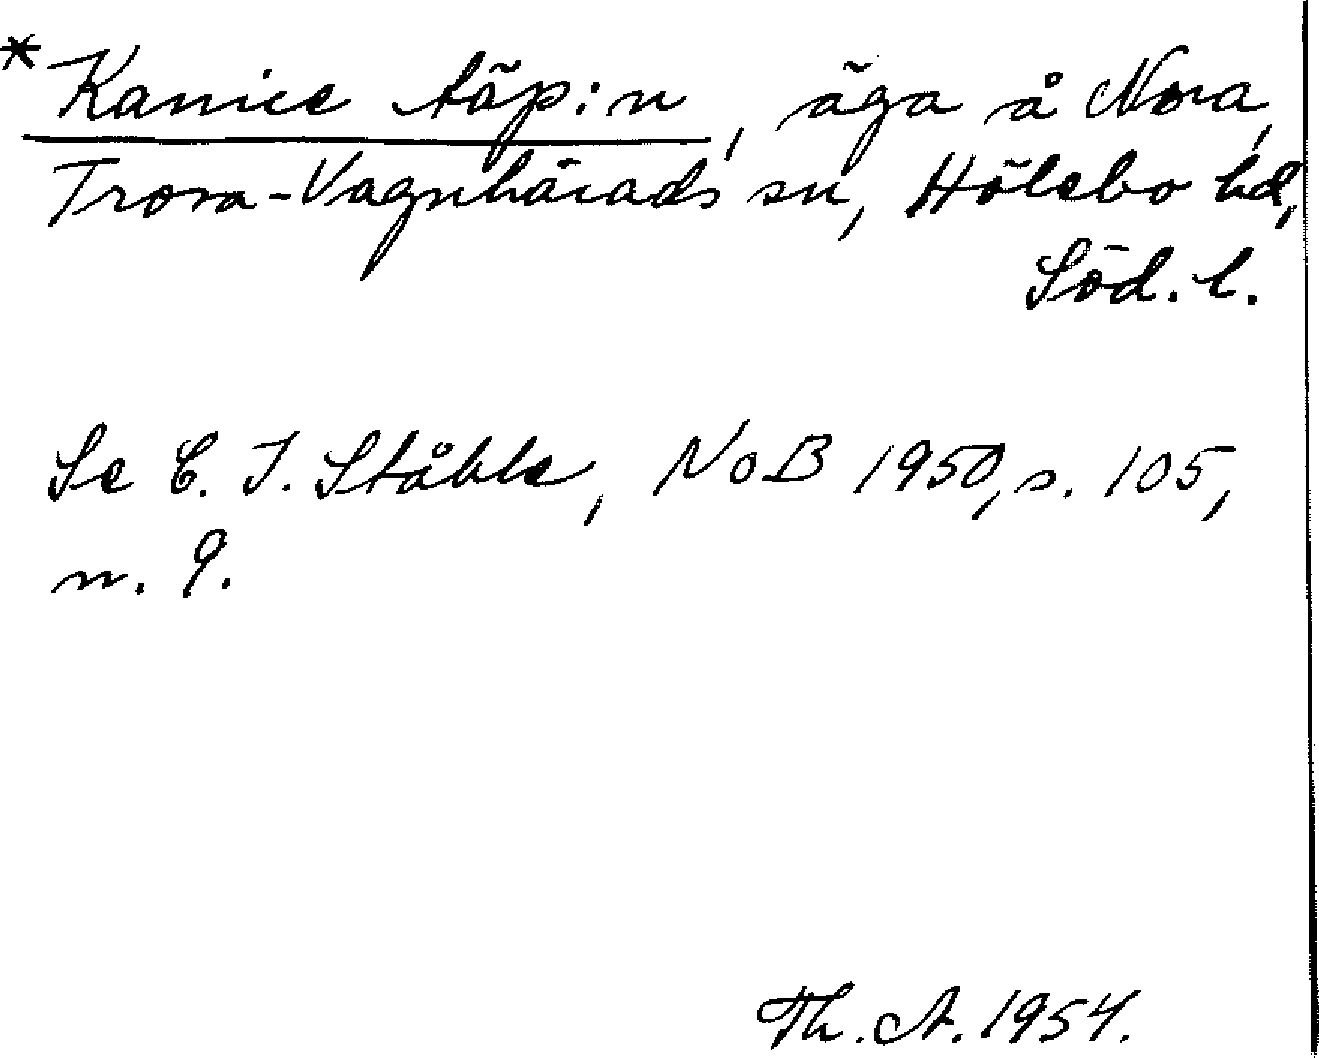 *Kanice täp:n, äga å Nora,
Trosa-Vagnhärads sn, Hölebo hd,
Söd. l.
Se C. I. Ståhle, NoB 1950, s. 105,
n. 9.
Th. A. 1954.